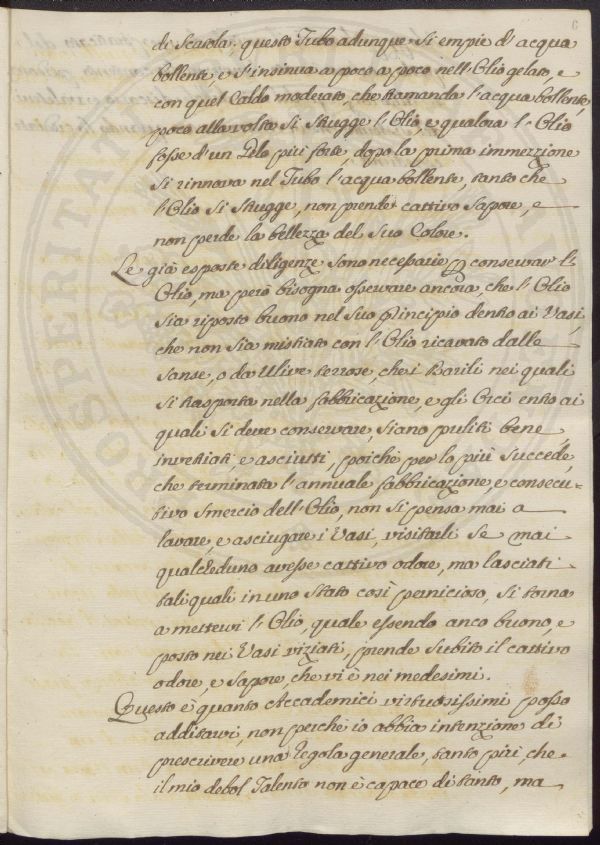 6
di Scatola: questo Tubo adunque si empie d'acqua
bollente e s'insinua a poco a poco nell'Olio gelato, e
con quel Caldo moderato, che tramanda l'acqua bollente,
poco alla volta si strugge l'Olio, e qualora l'Olio
fosse d'un Gelo più forte, dopo la prima immerzione
si rinnova nel Tubo l'acqua bollente, tanto che
l'Olio si strugge, non prende cattivo Sapore, e
non perde la bellezza del Suo Colore.
Le già esposte diligenze sono necessarie p conservar l'
Olio, ma però bisogna osservare ancora, che l'Olio
sia riposto buono nel suo principio dentro ai Vasi,
che non sia mistiato con l'Olio ricavato dalle
Sanse, o da Ulive terrose, che i Barili nei quali
si trasporta nella fabbricazione, e gli Orci entro ai
quali si deve conservare, siano puliti bene
invetriati, e asciutti, poichè per lo più succede,
che terminata l'annuale fabbricazione, e consecu-
tivo smercio dell'Olio, non si pensa mai a
lavare, e asciugare i Vasi, visitarli se mai
qualcheduno avesse cattivo odore, ma lasciati
tali quali in uno stato così pernicioso, si torna
a mettervi l'Olio, quale essendo anco buono, e
posto nei Vasi viziati, prende subito il cattivo
odore, e sapore, che vi è nei medesimi.
Questo è quanto Accademici virtuosissimi posso
additarvi, non perchè io abbia intenzione di
prescrivere una Regola generale, tanto più, che
il mio debol Talento non è capace di tanto, ma